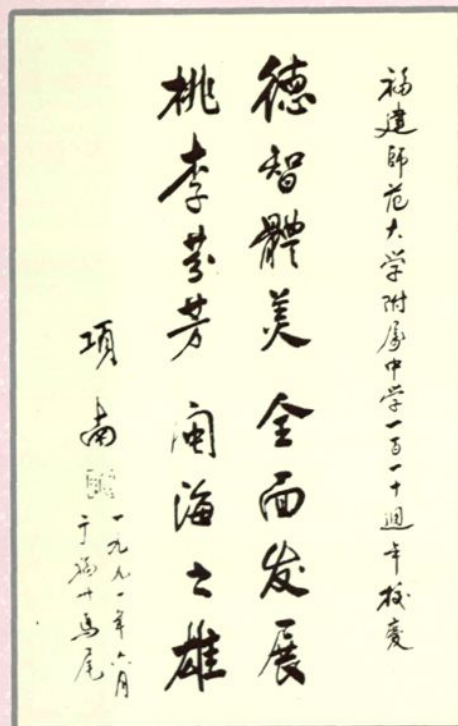 福建師范大学附属中学一百一十週年校慶
德智體美 全面发展
桃李芬芳 闽海之雄
項南
一九九一年六月
于福州馬尾